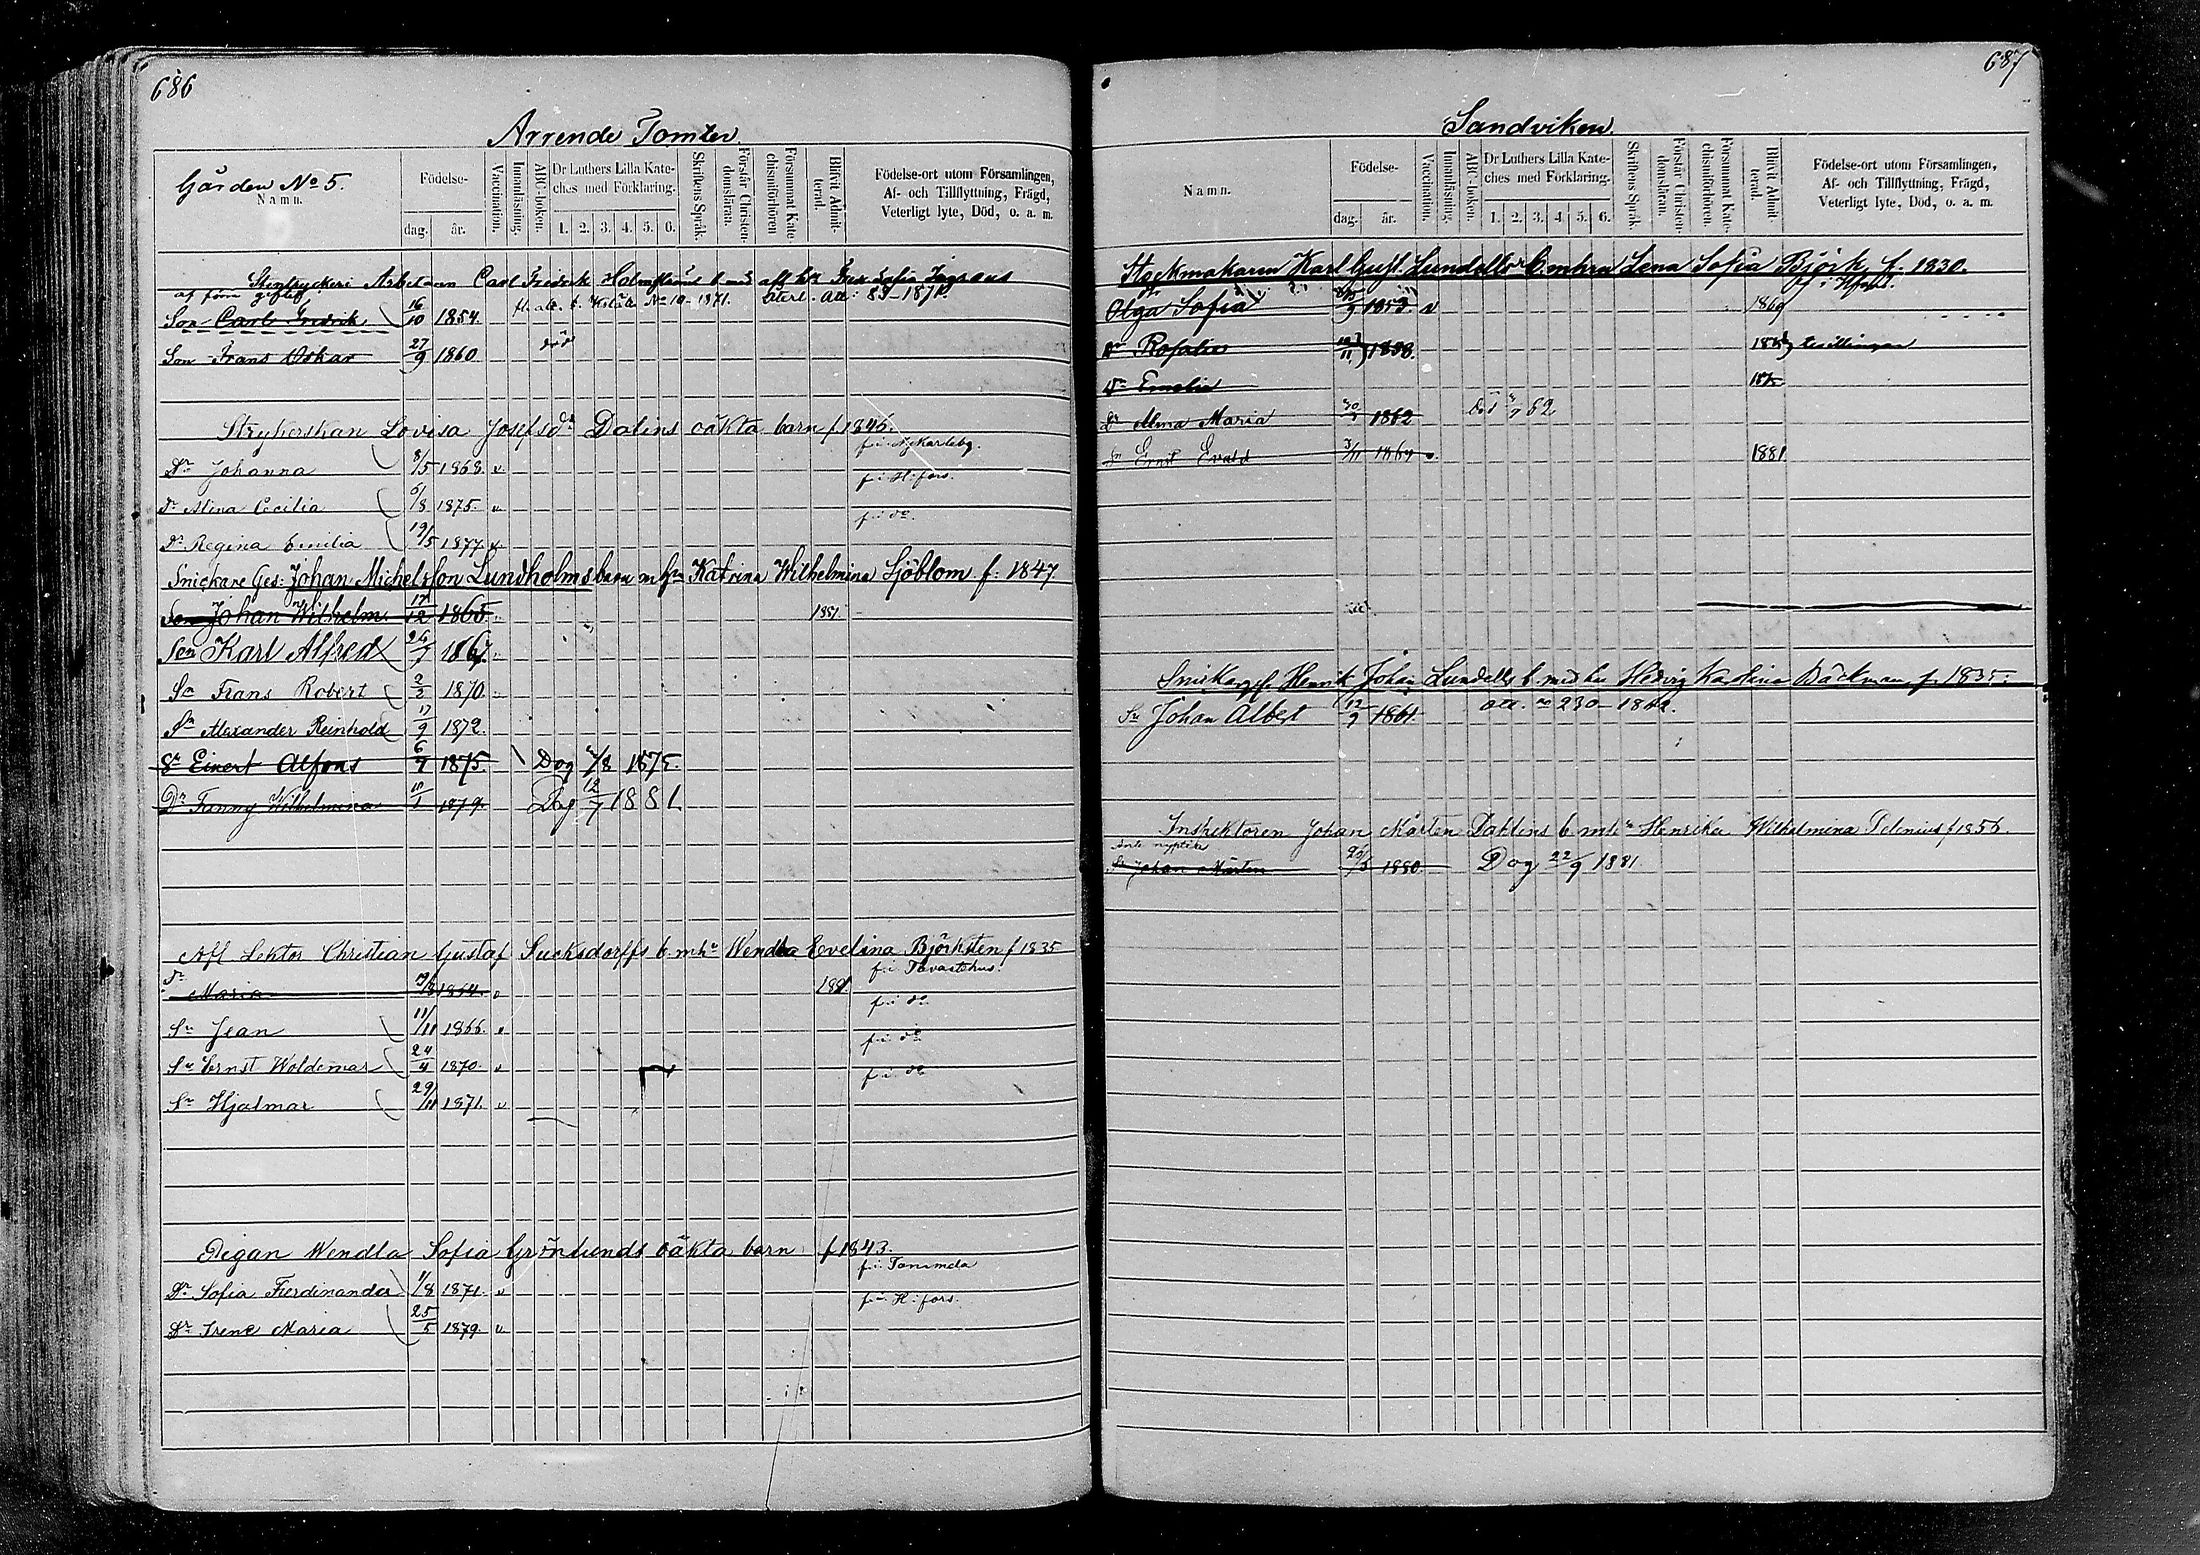 686
Arrende Tomter
Gården No 5.
Namn.
Födelse-
dag.
år.
Vaccination.
Innanläsning.
ABC-boken.
Dr Luthers Lilla Kate-
ches med Förklaring.
1. 2. 3. 4. 5. 6.
Skriftens Språk.
Förstår Christen-
domsläran.
Försummat Kate
chismiförhören
Blifvit Admit-
terad.
Födelse-ort utom Församlingen,
Af- och Tillflyttning, Frägd,
Veterligt lyte, Död, o. a. m.
Stentryckeri Arbetaren Carl Fredrik
af förra giftet
Son Carl Fredrik 16/10 1854.
Son Frans Oskar 27/9 1860 död
Strykerskan Lovisa Josefsdr Dalins oäkta barn f 1846.
f. i Nykarleby.
Dr Johanna 8/5 1868. v
f. i H:fors.
Dr Alina Cecilia 6/8 1875. v
f. i do.
Dr Regina Emilia 19/5 1877. v
Snickare Ges: Johan Michelsson Lundholms barn m hu Katrina Wilhelmina Sjöblom f. 1847.
Son Johan Wilhelm 17/12 1865. 1881.
Son Karl Alfred 26/7 1867.
So Frans Robert 2/2 1870.
Sn Alexander Reinhold 17/9 1872.
Sn Einert Alfons 6/7 1875. Dog /8 1875.
Dr Fanny Wilhelmina 10/1 1879. Dog 12/7 1881.
Afl Lektor Christian Gustaf Sucksdorffs b. mhu Wendla Evelina Björksten f 1835
f. i Tavastehus.
Dr Maria /8 1864. v 1881.
f. i do
Sn Jean 11/11 1866. v
f. i do
Sn Ernst Woldemar 24/4 1870. v
f. i do
Sn Hjalmar 29/11 1871. v
Pigan Wendla Sofia Grönlunds oäkta barn f 1843.
f. i
Dr Sofia Ferdinanda 1/8 1871. v
f. i H:fors.
Dr Irene Maria 25/5 1879. v
687
Sandviken.
Namn.
Födelse-
dag.
år.
Vaccination.
Innanläsning.
ABC-boken.
Dr Luthers Lilla Kate-
ches med Förklaring.
1. 2. 3. 4. 5. 6.
Skriftens Språk.
Förstår Christen-
domsläran.
Försummat Kate-
chismiförhören.
Blifvit Admit-
terad.
Födelse-ort utom Församlingen,
Af- och Tillflyttning, Frägd,
Veterligt lyte, Död, o. a. m.
Karl Gust. Lundells b. m hu Lena Sofia Björk f. 1830.
Olga Sofia /9 1853. v 1869
Dr Rosalia /11 1858. tvillingar
Dr Emelia
Dr Alma Maria 1862 Död /7 62
Sn Emil Evald 3/11 1864 v 1881
Snickareges. Henrik Johan Lundells b. med hu Hedvig Karolina Bäckman f. 1835.
Sn Johan Albert 12/9 1861. att. no 230 1862.
Inspektoren Johan Mårten Dahlins b. mhu Henrika Wilhelmina f 1856.
Sn Johan Mårten 1880. Dog 22/9 1881